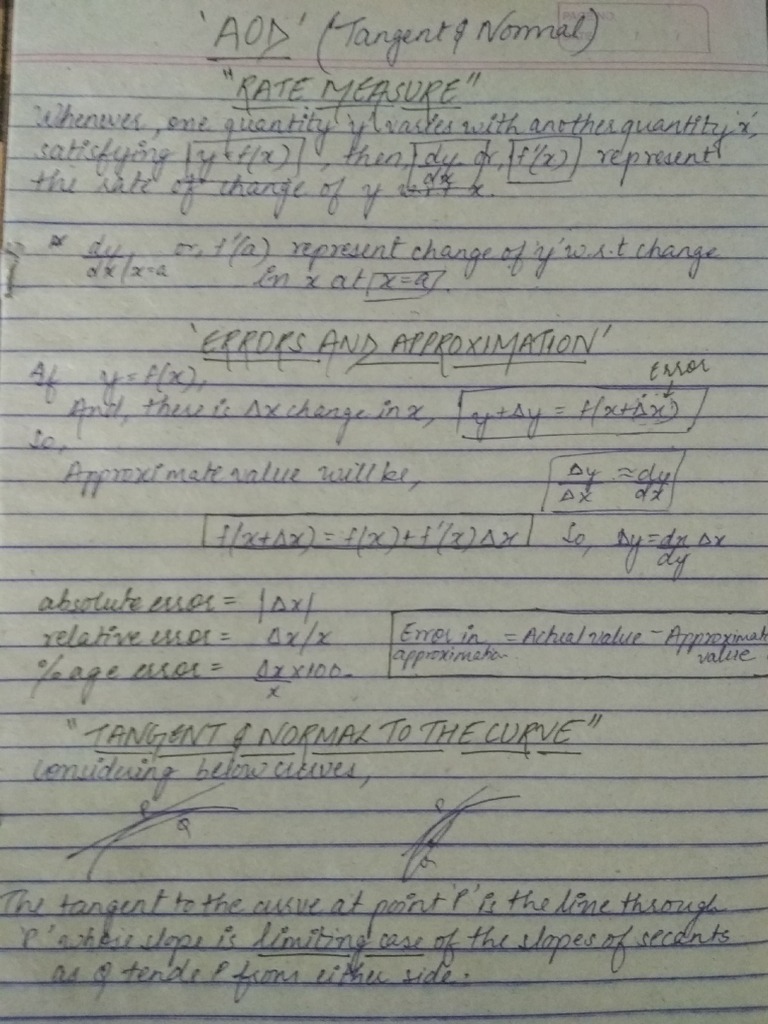 'AOD' (Tangent & Normal)
"RATE MEASURE"
Whenever, one quantity 'y' varies with another quantity 'x',
satisfying y=f(x), then, dy/dx or, f'(x) represent
the rate of change of y w.r.t x.
* dy/dx|x=a or, f'(a) represent change of 'y' w.r.t change
in x at x=a.
'ERRORS AND APPROXIMATION'
If y=f(x), Error
And, there is Δx change in x, y+Δy = f(x+Δx)
So,
Approximate value will be, Δy/Δx ≈ dy/dx
f(x+Δx) = f(x)+f'(x)Δx So, Δy=dx/dy Δx
absolute error = |Δx|
relative error = Δx/x Error in approximation = Actual value - Approximate value
%age error = Δx/x ×100
"TANGENT & NORMAL TO THE CURVE"
Considering below curves,
P Q
The tangent to the curve at point 'P' is the line through
'P' whose slope is limiting case of the slopes of secants
as Q tends P from either side.